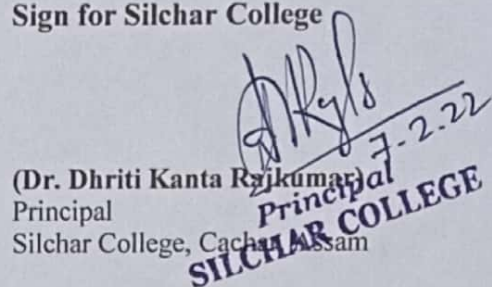 Sign for Silchar College
7-2.22
(Dr. Dhriti Kanta Rajkumar)
Principal
Principal
Silchar College, Cachar, Assam
SILCHAR COLLEGE